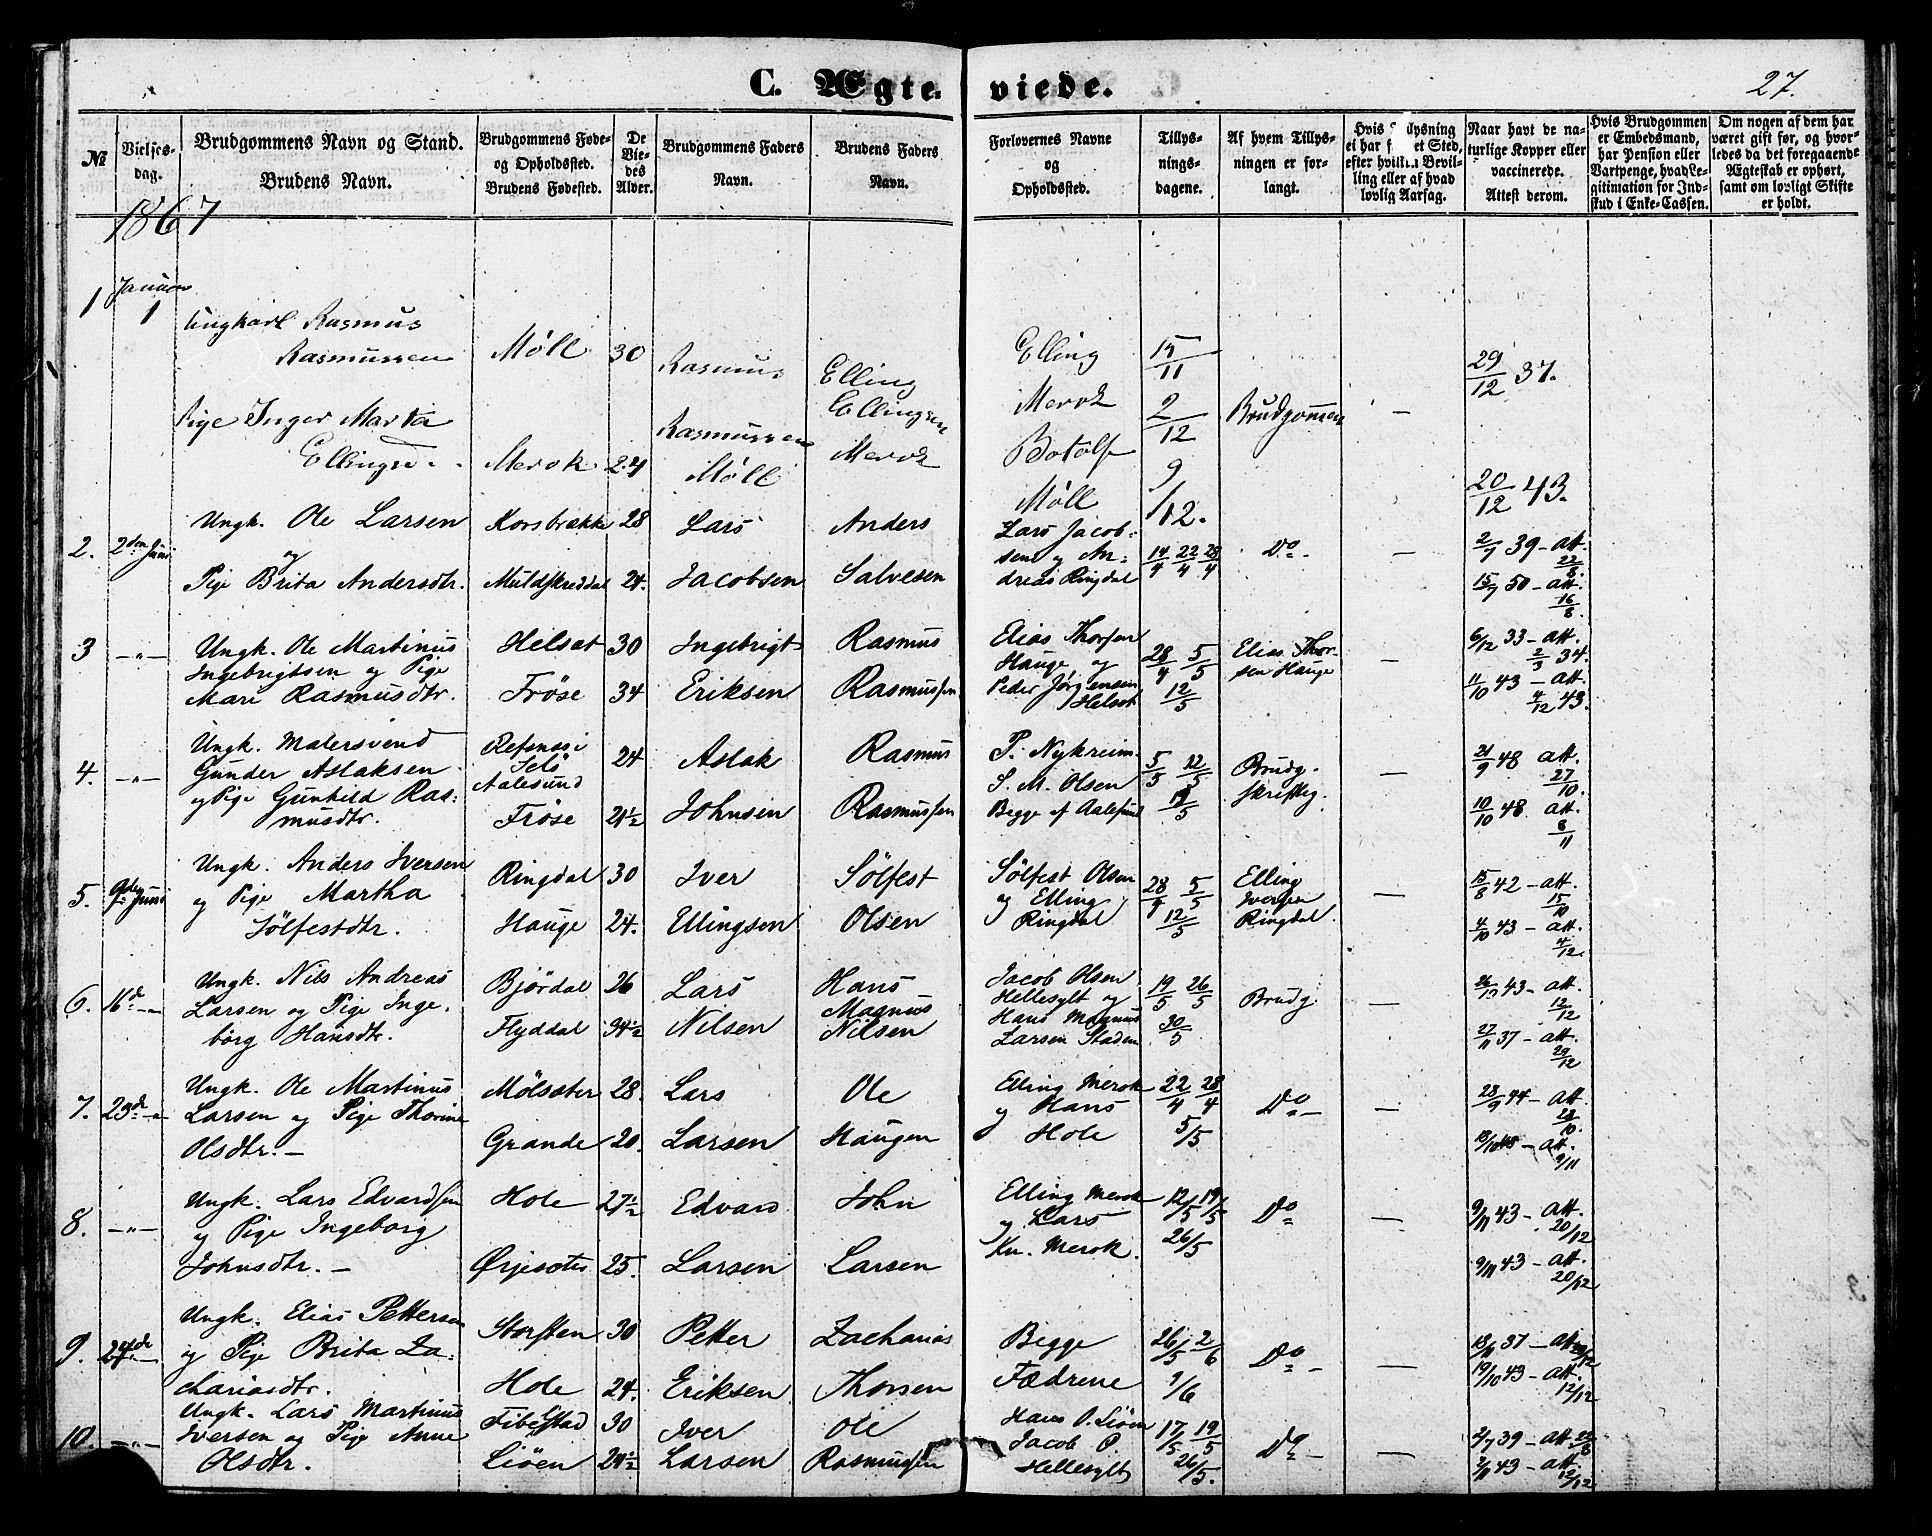 C. Ægte- viede.
27.
№
Vielses-
dag.
Brudgommens Navn og Stand.
Brudens Navn.
Brudgommens Føde-
og Opholdssted.
Brudens Fødested.
De
Vie-
des
Alder.
Brudgommens Faders
Navn.
Brudens Faders
Navn.
Forlovernes Navne
og
Opholdssted.
Tillys-
nings-
dagene.
Af hvem Tillys-
ningen er for-
langt.
Hvis lysning
ei har et Sted,
efter hvilken Bevil-
ling eller af hvad
lovlig Aarsag.
Naar havt de na-
turlige Kopper eller
vaccinerede.
Attest derom.
Hvis Brudgommen
er Embedsmand,
har Pension eller
Vartpenge, hvad Le-
gitimation for Ind-
skud i Enke-Cassen.
Om nogen af dem har
været gift før, og hvor-
ledes da det foregaaende
Ægteskab er ophørt,
samt om lovligt Skifte
er holdt.
1867
1 Januar 1
Ungkarl Rasmus
Rasmussen
Pige Inger Marta
Ellingsd.
Möll 30
Merok 24
Rasmus
Rasmussen
Möll
Elling
Ellingsen
Merok
Elling
Merok
Botolf
Möll
15/11
2/12
9/12.
Brudgommen
—
29/12 37.
20/12 43.
2. 2den Juni
Ungk. Ole Larsen
og
Pige Brita Andersdtr.
Korsbrække 28
Muldskreddal 24.
Lars
Jacobsen
Anders
Salvesen
Lars Jacob-
sen og An-
dreas Ringdal
14/4 22/4 28/4
Do
—
2/7 39 - att. 22/8.
15/7 50 - att. 16/8.
3 —"—
Ungk. Ole Martinus
Ingebrigtsen og Pige
Mari Rasmusdtr.
Helsæt 30
Fröse 34
Ingebrigt
Eriksen
Rasmus
Rasmussen
Elias Thorsen
Hauge og
Peder Jörgensen
Helset
28/4 5/5
12/5
Elias Thor-
sen Hauge
—
6/12 33 - att. 2/3 34.
11/10 43 - att. 4/12 43.
4. —"—
Ungk. Malersvend
Gunder Aslaksen
og Pige Gunhild Ras-
musdtr.
Aalesund 24
Fröse 21½
Aslak
Johnsen
Rasmus
Rasmussen
P. Nykreim
S. M. Olsen
Begge af Aalesund
5/5 12/5
19/5
Brudg.
skriftlig.
—
21/9 48 att. 27/10.
10/10 48. att. 8/11
5. 9de Juni
Ungk. Anders Iversen
og Pige Martha
Sölfestdtr.
Ringdal 30
Hauge 24.
Iver
Ellingsen
Sölfest
Olsen
Sölfest Olsen
og Elling
Ringdal
28/4 5/5
12/5
Elling
Iversen
Ringdal.
—
15/8 42 - att. 15/10
4/10 43 - att. 4/12
6. 16de —
Ungk. Nils Andreas
Larsen og Pige Inge-
borg Hansdtr.
Bjørdal 26
Flyddal 34½
Lars
Nilsen
Hans
Magnus
Nilsen
Jacob Olsen
Hellesylt og
Hans Magnus
Larsen Staden
19/5 26/5
30/5
Brudg.
—
43 - att. 12/12
27/11 37 - att. 29/12
7. 23de —
Ungk. Ole Martinus
Larsen og Pige Thorine
Olsdtr. —
Mölsæter 28.
Grande 20.
Lars
Larsen
Ole
Haugen
Elling Merok
og Hans
Hole
22/4 28/4
5/5
Do —
—
28/9 44 - att.
att. 9/11
8. —"—
Ungk. Lars Edvardsen
og Pige Ingeborg
Johnsdtr. —
Hole 27½
Ørjesæter 25.
Edvard
Larsen
John
Larsen
Elling Merok
og Lars
Kn. Merok.
12/5 19/5
26/5
Do
—
9/11 43 - att. 20/12
9/11 43 - att. 20/12
9. 24de —
Ungk. Elias Pettersen
og Pige Brita Za-
chariasdtr.
Storsten 30
Hole 24.
Petter
Eriksen
Zacharias
Thorsen
Begge
Fædrene
26/5 2/6
9/6
Do —
—
37 - att.
19/10 43 - att. 12/12
10. —"—
Ungk. Lars Martinus
Iversen og Pige Anne
Olsdtr.
Fibelstad 30
Liöen 24½
Iver
Larsen
Ole
Rasmussen
Hans O. Liöen
Jacob P.
Hellesylt
17/5 19/5
26/5.
Do —
—
2/7 39 - att. 22/8
43 - att. 12/12